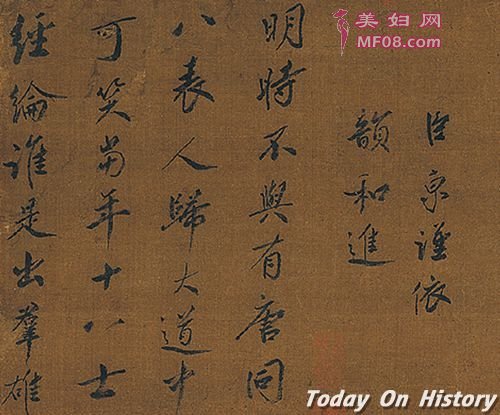 臣京謹依
韻和進
明時不與有唐同
八表人歸大道中
可笑當年十八士
經綸誰是出羣雄
美妇网
MF08.com
Today On History